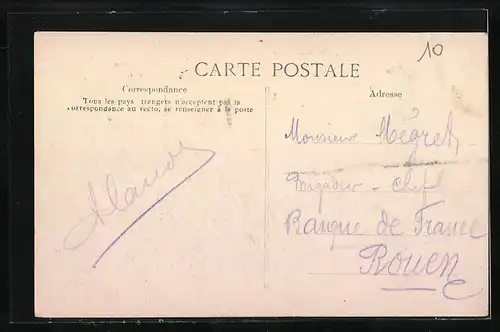 10
CARTE POSTALE
Correspondance
Tous les pays trangers n'acceptent pas la
correspondance au recto, se renseigner à la poste
Adresse
Monsieur Mégret
Brigadier-Chef
Banque de France
Rouen